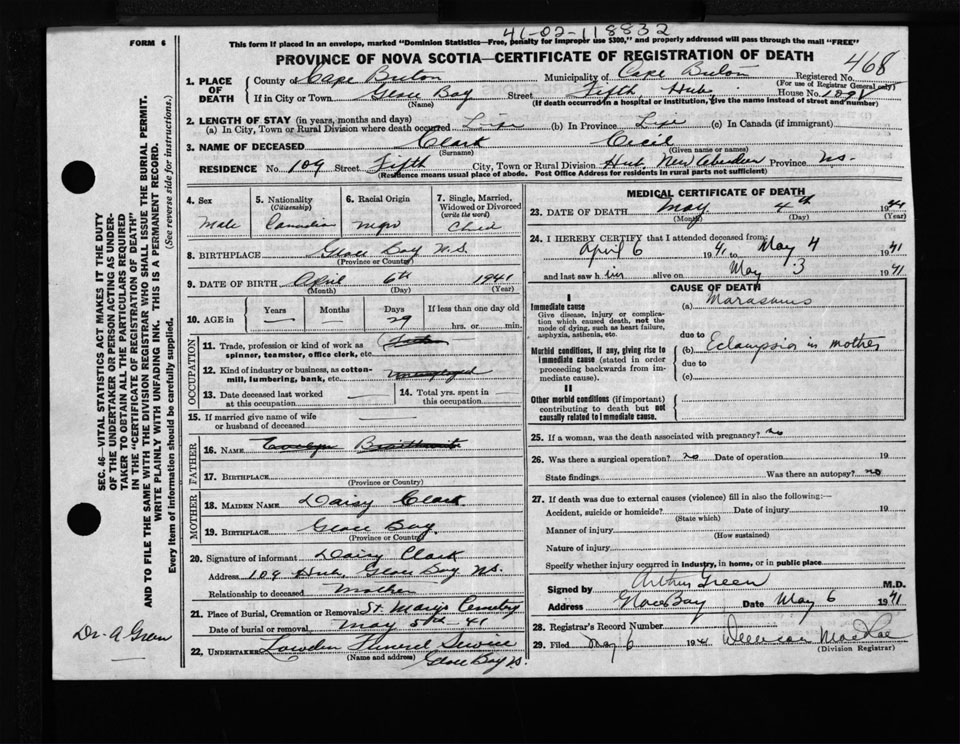 41-02-118832
FORM 6
This form if placed in an envelope, marked "Dominion Statistics—Free, penalty for improper use $300," and properly addressed will pass through the mail "FREE"
PROVINCE OF NOVA SCOTIA—CERTIFICATE OF REGISTRATION OF DEATH
468
1. PLACE OF DEATH
County of Cape Breton Municipality of Cape Breton Registered No.
(For use of Registrar General only)
If in City or Town Glace Bay Street Fifth Hub House No. 109
(Name) (If death occurred in a hospital or institution, give the name instead of street and number)
2. LENGTH OF STAY (in years, months and days)
(a) In City, Town or Rural Division where death occurred Life (b) In Province Life (c) In Canada (if immigrant)
3. NAME OF DECEASED Clark Cecil
(Surname) (Given name or names)
RESIDENCE No. 109 Street Fifth City, Town or Rural Division Hub New Aberdeen Province N.S.
(Residence means usual place of abode. Post Office Address for residents in rural parts not sufficient)
4. Sex
Male
5. Nationality
(Citizenship)
Canadian
6. Racial Origin
7. Single, Married, Widowed or Divorced
(write the word)
Child
8. BIRTHPLACE Glace Bay N.S.
(Province or Country)
9. DATE OF BIRTH April 6th 1941
(Month) (Day) (Year)
10. AGE in
Years Months Days If less than one day old
— — 29 hrs. or min.
OCCUPATION
11. Trade, profession or kind of work as spinner, teamster, office clerk, etc.
12. Kind of industry or business, as cotton-mill, lumbering, bank, etc.
13. Date deceased last worked at this occupation
14. Total yrs. spent in this occupation
15. If married give name of wife or husband of deceased
FATHER
16. NAME
17. BIRTHPLACE
(Province or Country)
MOTHER
18. MAIDEN NAME Daisy Clark
19. BIRTHPLACE Glace Bay
(Province or Country)
20. Signature of informant Daisy Clark
Address 109 Hub, Glace Bay N.S.
Relationship to deceased Mother
21. Place of Burial, Cremation or Removal St. Mary's Cemetery
Date of burial or removal May 5th - 41
22. UNDERTAKER Lowden Funeral Service
(Name and address) Glace Bay N.S.
MEDICAL CERTIFICATE OF DEATH
23. DATE OF DEATH May 4th 1941
(Month) (Day) (Year)
24. I HEREBY CERTIFY that I attended deceased from:
April 6 1941 to May 4 1941
and last saw him alive on May 3 1941
CAUSE OF DEATH
I
Immediate cause
Give disease, injury or complication which caused death, not the mode of dying, such as heart failure, asphyxia, asthenia, etc.
(a) Marasmus
due to
Morbid conditions, if any, giving rise to immediate cause (stated in order proceeding backwards from immediate cause).
(b) Eclampsia in mother
due to
(c)
II
Other morbid conditions (if important) contributing to death but not causally related to immediate cause.
25. If a woman, was the death associated with pregnancy? no
26. Was there a surgical operation? no Date of operation 19
State findings Was there an autopsy? no
27. If death was due to external causes (violence) fill in also the following:—
Accident, suicide or homicide? Date of injury 19
(State which)
Manner of injury
(How sustained)
Nature of injury
Specify whether injury occurred in industry, in home, or in public place
Signed by Arthur Green M.D.
Address Glace Bay Date May 6 1941
28. Registrar's Record Number
29. Filed May 6 1941
(Division Registrar)
SEC. 46—VITAL STATISTICS ACT MAKES IT THE DUTY
OF THE UNDERTAKER OR PERSON ACTING AS UNDER-
TAKER TO OBTAIN ALL THE PARTICULARS REQUIRED
IN THE "CERTIFICATE OF REGISTRATION OF DEATH"
AND TO FILE THE SAME WITH THE DIVISION REGISTRAR WHO SHALL ISSUE THE BURIAL PERMIT.
WRITE PLAINLY WITH UNFADING INK. THIS IS A PERMANENT RECORD.
Every item of information should be carefully supplied. (See reverse side for instructions.)
Dr. A Green